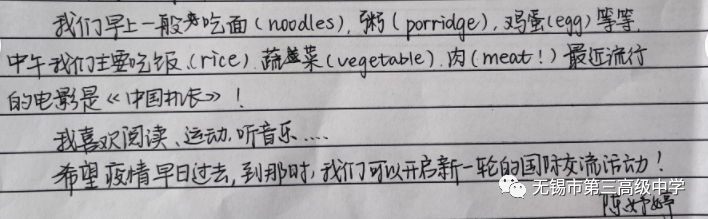 我们早上一般吃面(noodles),粥(porridge),鸡蛋(egg)等等,
中午我们主要吃饭(rice)、蔬菜(vegetable)、肉(meat!)最近流行
的电影是《中国机长》!
我喜欢阅读、运动,听音乐....
希望疫情早日过去,到那时,我们可以开启新一轮的国际交流活动!
无锡市第三高级中学
陈妤婷